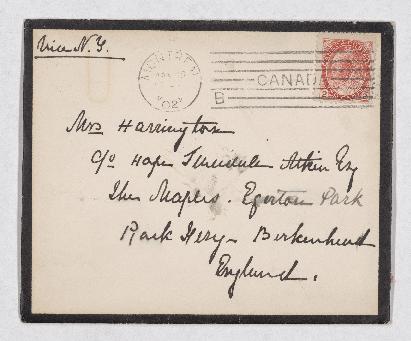 Via N.Y.
MONTREAL
02
CANADA
B
2
Mrs Harrington
c/o Hope Atkin Esq
The Maples. Egerton Park
Rock Ferry - Birkenhead
England.